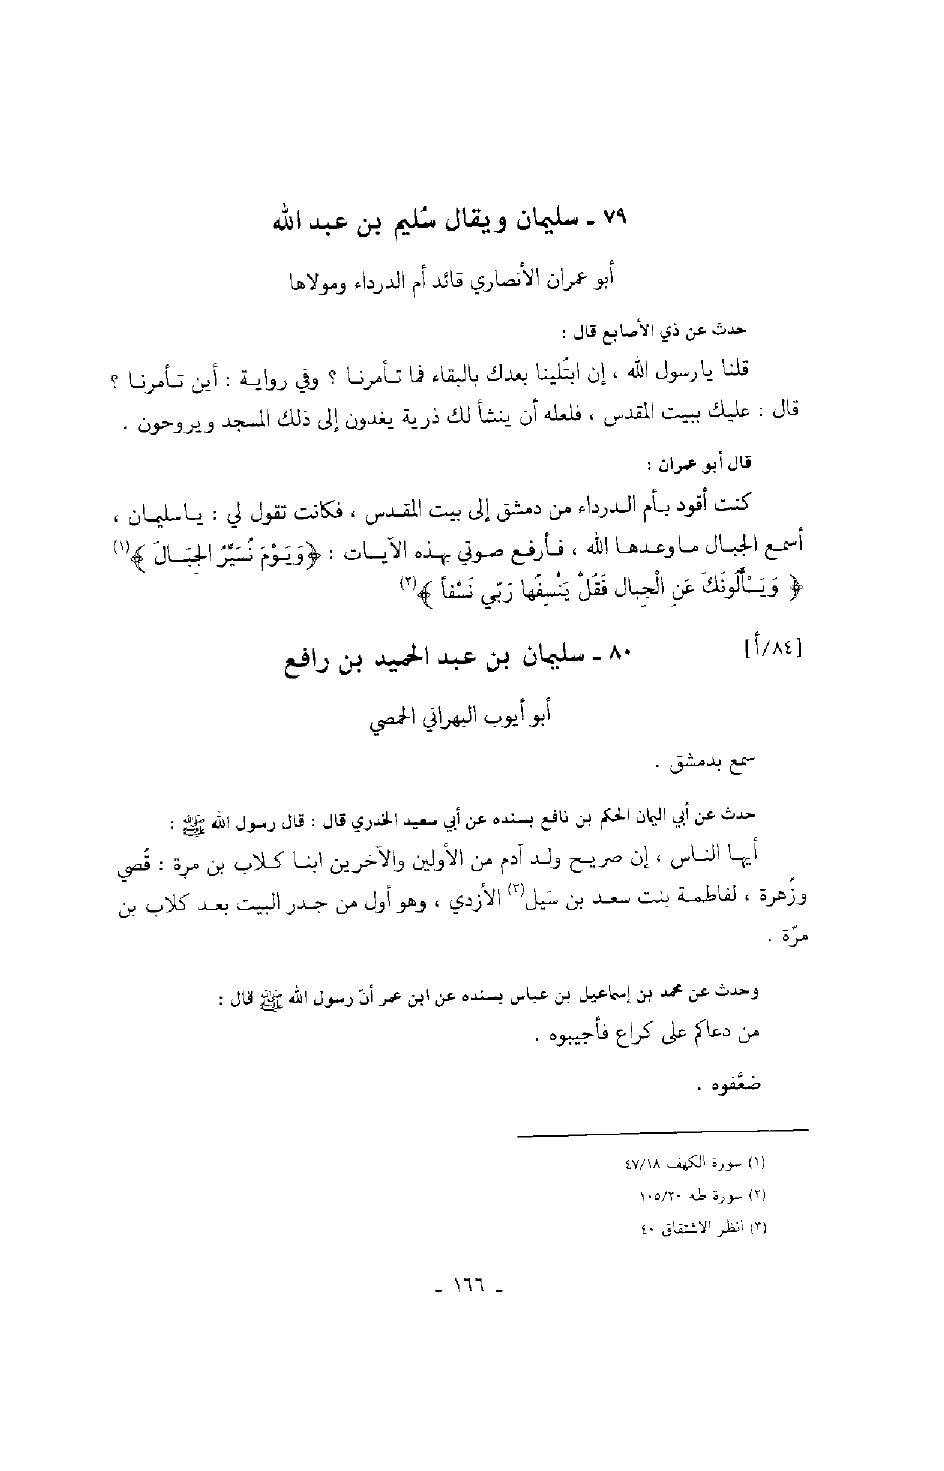 ٧٩ ـ سليمان ويقال سُليم بن عبد الله
أبو عمران الأنصاري قائد أم الدرداء ومولاها
حدث عن ذي الأصابع قال :
قلنا يا رسول الله ، إن ابتُلينا بعدك بالبقاء فما تأمرنا ؟ وفي رواية : أين تأمرنا ؟
قال : عليك ببيت المقدس ، فلعله أن ينشأ لك ذرية يغدون إلى ذلك المسجد ويروحون .
قال أبو عمران :
كنت أقود بأم الدرداء من دمشق إلى بيت المقدس ، فكانت تقول لي : يا سليمان ،
أسمع الجبال ما وعدها الله ، فأرفع صوتي بهذه الآيات : ﴿وَيَوْمَ نُسَيِّرُ الجِبَالَ﴾(١)
﴿ وَيَسْأَلُونَكَ عَنِ الْجِبالِ فَقُلْ يَنْسِفُها رَبِّي نَسْفاً ﴾(٢)
[٨٤/أ]
٨٠ ـ سليمان بن عبد الحميد بن رافع
أبو أيوب البهراني الحمصي
سمع بدمشق .
حدث عن أبي اليمان الحكم بن نافع بسنده عن أبي سعيد الخدري قال : قال رسول الله ﷺ :
أيها الناس ، إن صريح ولد آدم من الأولين والآخرين ابنا كلاب بن مرة : قُصي
وزُهرة ، لفاطمة بنت سعد بن سَيَل(٣) الأزدي ، وهو أول من جدر البيت بعد كلاب بن
مرّة .
وحدث عن محمد بن إسماعيل بن عياس بسنده عن ابن عمر أنّ رسول الله ﷺ قال :
من دعاكم على كراع فأجيبوه .
ضعَّفوه .
(١) سورة الكهف ٤٧/١٨
(٢) سورة طه ١٠٥/٢٠
(٣) انظر الاشتقاق ٤٠
ـ ١٦٦ ـ